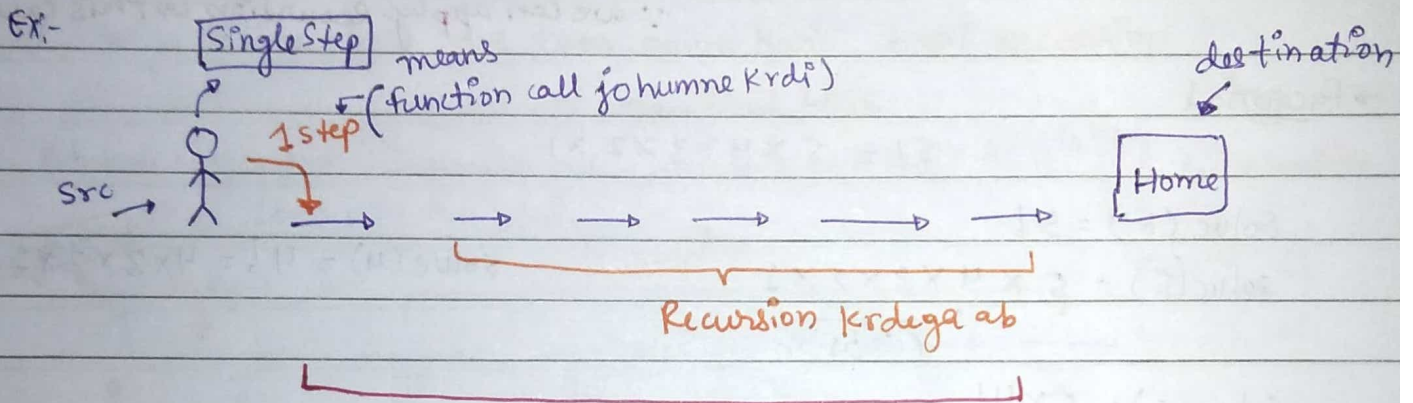 Ex:-
Single Step
means
(function call jo humne krdi)
destination
1 step
src
Home
Recursion krdega ab